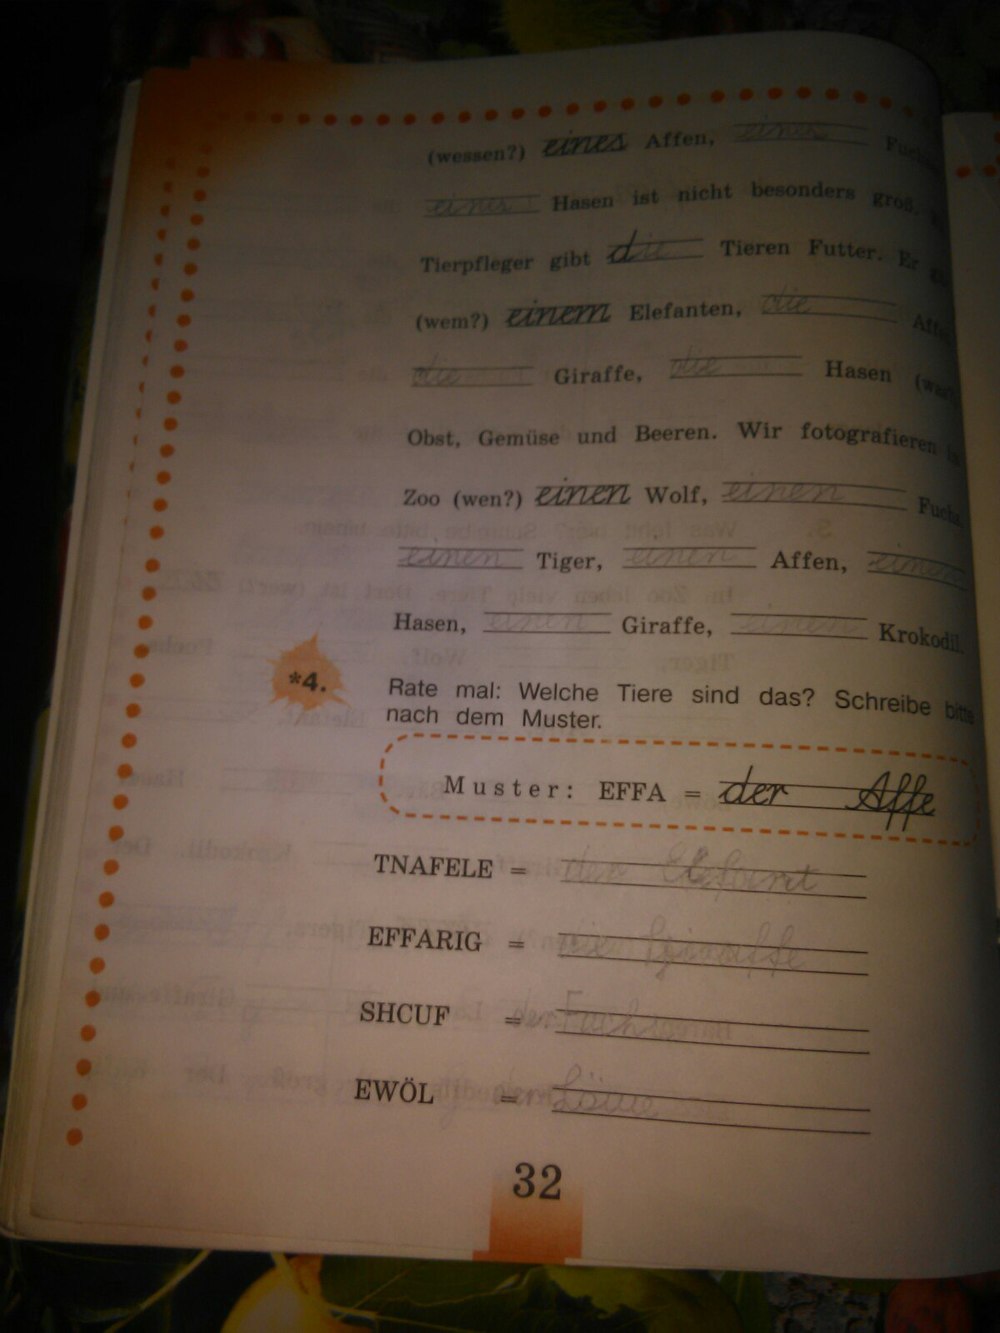 (wessen?) eines Affen, eines
eines Hasen ist nicht besonders groß.
Tierpfleger gibt die Tieren Futter. Er
(wem?) einem Elefanten, die
die Giraffe, die Hasen
Obst, Gemüse und Beeren. Wir fotografieren
Zoo (wen?) einen Wolf, einen Fuchs,
einen Tiger, einen Affen, einen
Hasen, einen Giraffe, einen Krokodil.
*4. Rate mal: Welche Tiere sind das? Schreibe bitte
nach dem Muster.
Muster: EFFA = der Affe
TNAFELE = der Elefant
EFFARIG = die Giraffe
SHCUF = der Fuchs
EWÖL = der Löwe
32